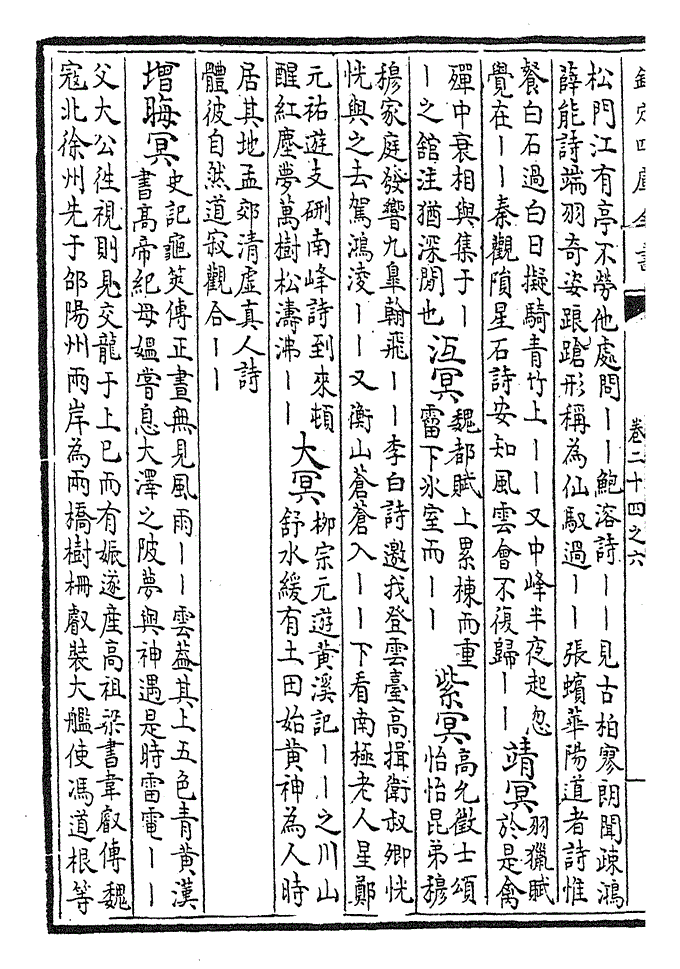 欽定四庫全書
卷二十四之六
松門江有亭不勞他處問丨丨鮑溶詩丨丨見古柏寥朗聞疎鴻
薛能詩端羽奇姿踉蹌形稱為仙馭過丨丨張蠙華陽道者詩惟
餐白石過白日擬騎青竹上丨丨又中峰半夜起忽
覺在丨丨秦觀隕星石詩安知風雲會不復歸丨丨
靖冥
羽獵賦
於是禽
殫中衰相與集于丨
丨之舘注猶深閒也
沍冥
魏都賦上累棟而重
霤下氷室而丨丨
紫冥
高允徵士頌
怡怡昆弟穆
穆家庭發響九臯翰飛丨丨李白詩邀我登雲臺高揖衛叔卿恍
恍與之去駕鴻淩丨丨又衡山蒼蒼入丨丨下看南極老人星鄭
元祐遊支硎南峰詩到來頓
醒紅塵夢萬樹松濤沸丨丨
大冥
栁宗元遊黃溪記丨丨之川山
舒水緩有土田始黃神為人時
居其地孟郊清虛真人詩
體彼自然道寂觀合丨丨
增晦冥
史記龜筴傳正晝無見風雨丨丨雲葢其上五色青黃漢
書高帝紀母媪嘗息大澤之陂夢與神遇是時雷電丨丨
父大公徃視則見交龍于上巳而有娠遂產高祖梁書韋叡傳魏
寇北徐州先于邵陽州兩岸為兩橋樹柵叡裝大艦使馮道根等